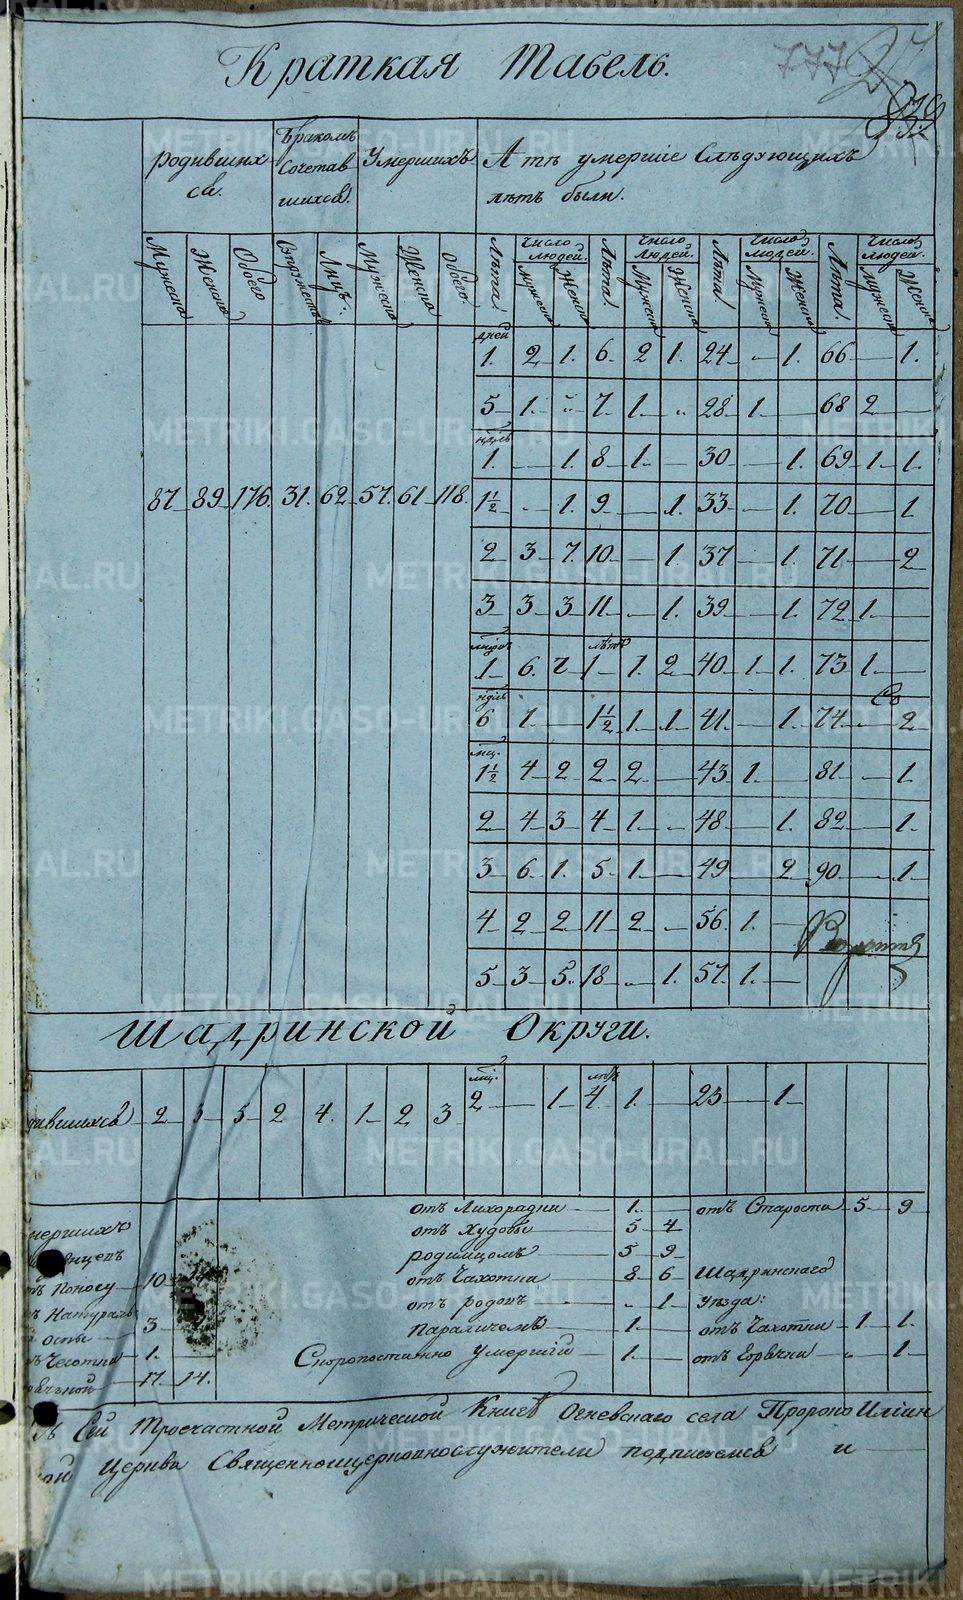 777
839
Краткая Табель.
родивших
ся.
Бракомъ
Сочетав
шихся.
Умершихъ
А тѣ умершіе Слѣдующихъ
лѣтъ были.
Мужеска Женска Обоего Супружествъ Лицъ Мужеска Женска Обоего Лѣта Число людей. Мужеска Женска Лѣта Число людей. Мужеска Женска Лѣта Число людей. Мужеска Женска Лѣта Число людей. Мужеска Женска
дней
1. 2 1. 6 2 1. 24 1. 66 1.
5 1. „ 7 1. „ 28 1. 68 2
ндль
1. 1. 8 1. 30 1. 69 1 1.
87 89 176. 31. 62 57. 61 118.
1½ 1. 9 1. 33 1. 70 1
2 3 7. 10 1. 37 1. 71 2
3 3 3 11 1. 39 1. 72 1.
лѣтъ
1 6. 7 1 1. 2 40 1 1. 73 1.
ндль
6 1. 1½ 1 1. 41. 1. 74 2
мц.
1½ 4 2 2 2 43 1. 81. 1.
2 4 3 4 1. 48 1. 82 1.
3 6. 1. 5 1. 49 2 90 1.
4 2 2 11 2 56. 1.
5 3 5. 18 1. 57. 1.
Шадринской Округи.
мц. лѣтъ
дившихся 2 3 5 2 4. 1 2 3 2 1 4. 1. 23 1.
мершихъ
отъ Лихорадки 1.
отъ Худобы 5 4
родимцомъ 5 9
отъ Чахотки 8 6
отъ родовъ „ 1.
Параличемъ 1.
Скоропостижно умершій 1.
отъ Старости 5 9
Шадринскаго
Уѣзда:
отъ Чахотки 1. 1.
отъ Горячки „ 1.
Поносу 10.
Натураль
Оспы 3
Чесотки 1.
17. 14.
Сей Троечастной Метрической Книгѣ Огневскаго села Пророко Иліин
кой Церкви Священноицерковнослужители подпишемся и
METRIKI.GASO-URAL.RU